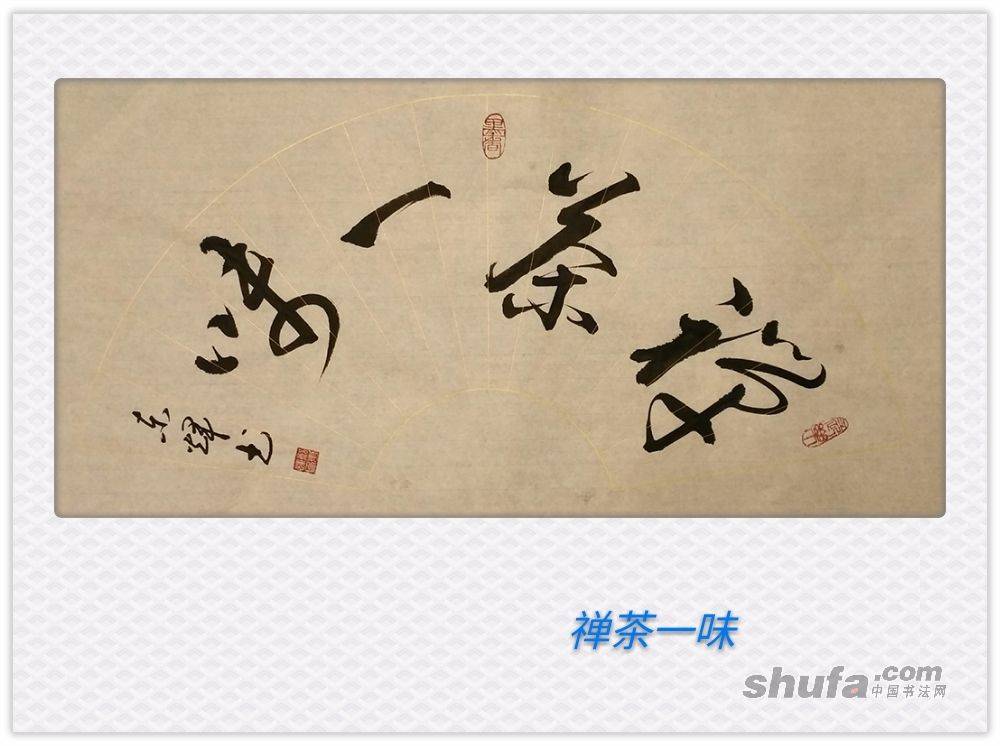 禅茶一味
东辉书
禅茶一味
shufa.com
中国书法网